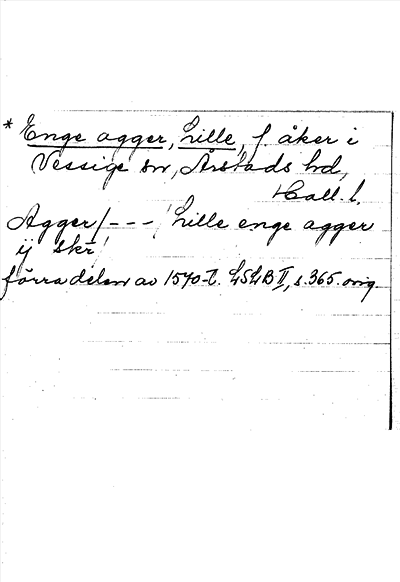 * Enge agger, Lille, f. åker i
Vessige sn, Årstads hd,
Hall. l.
Agger /---/ Lille enge agger
ij skr
förra delen av 1570-t. LSLB II, s. 365. orig